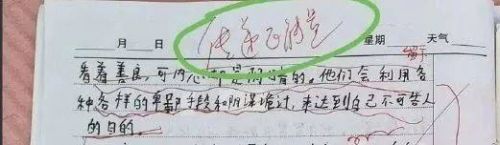 月 日 传递正能量 星期 天气
看着善良，可内心却是阴暗的。他们会利用各
种各样的卑鄙手段和阴谋诡计，来达到自己不可告人
的目的。